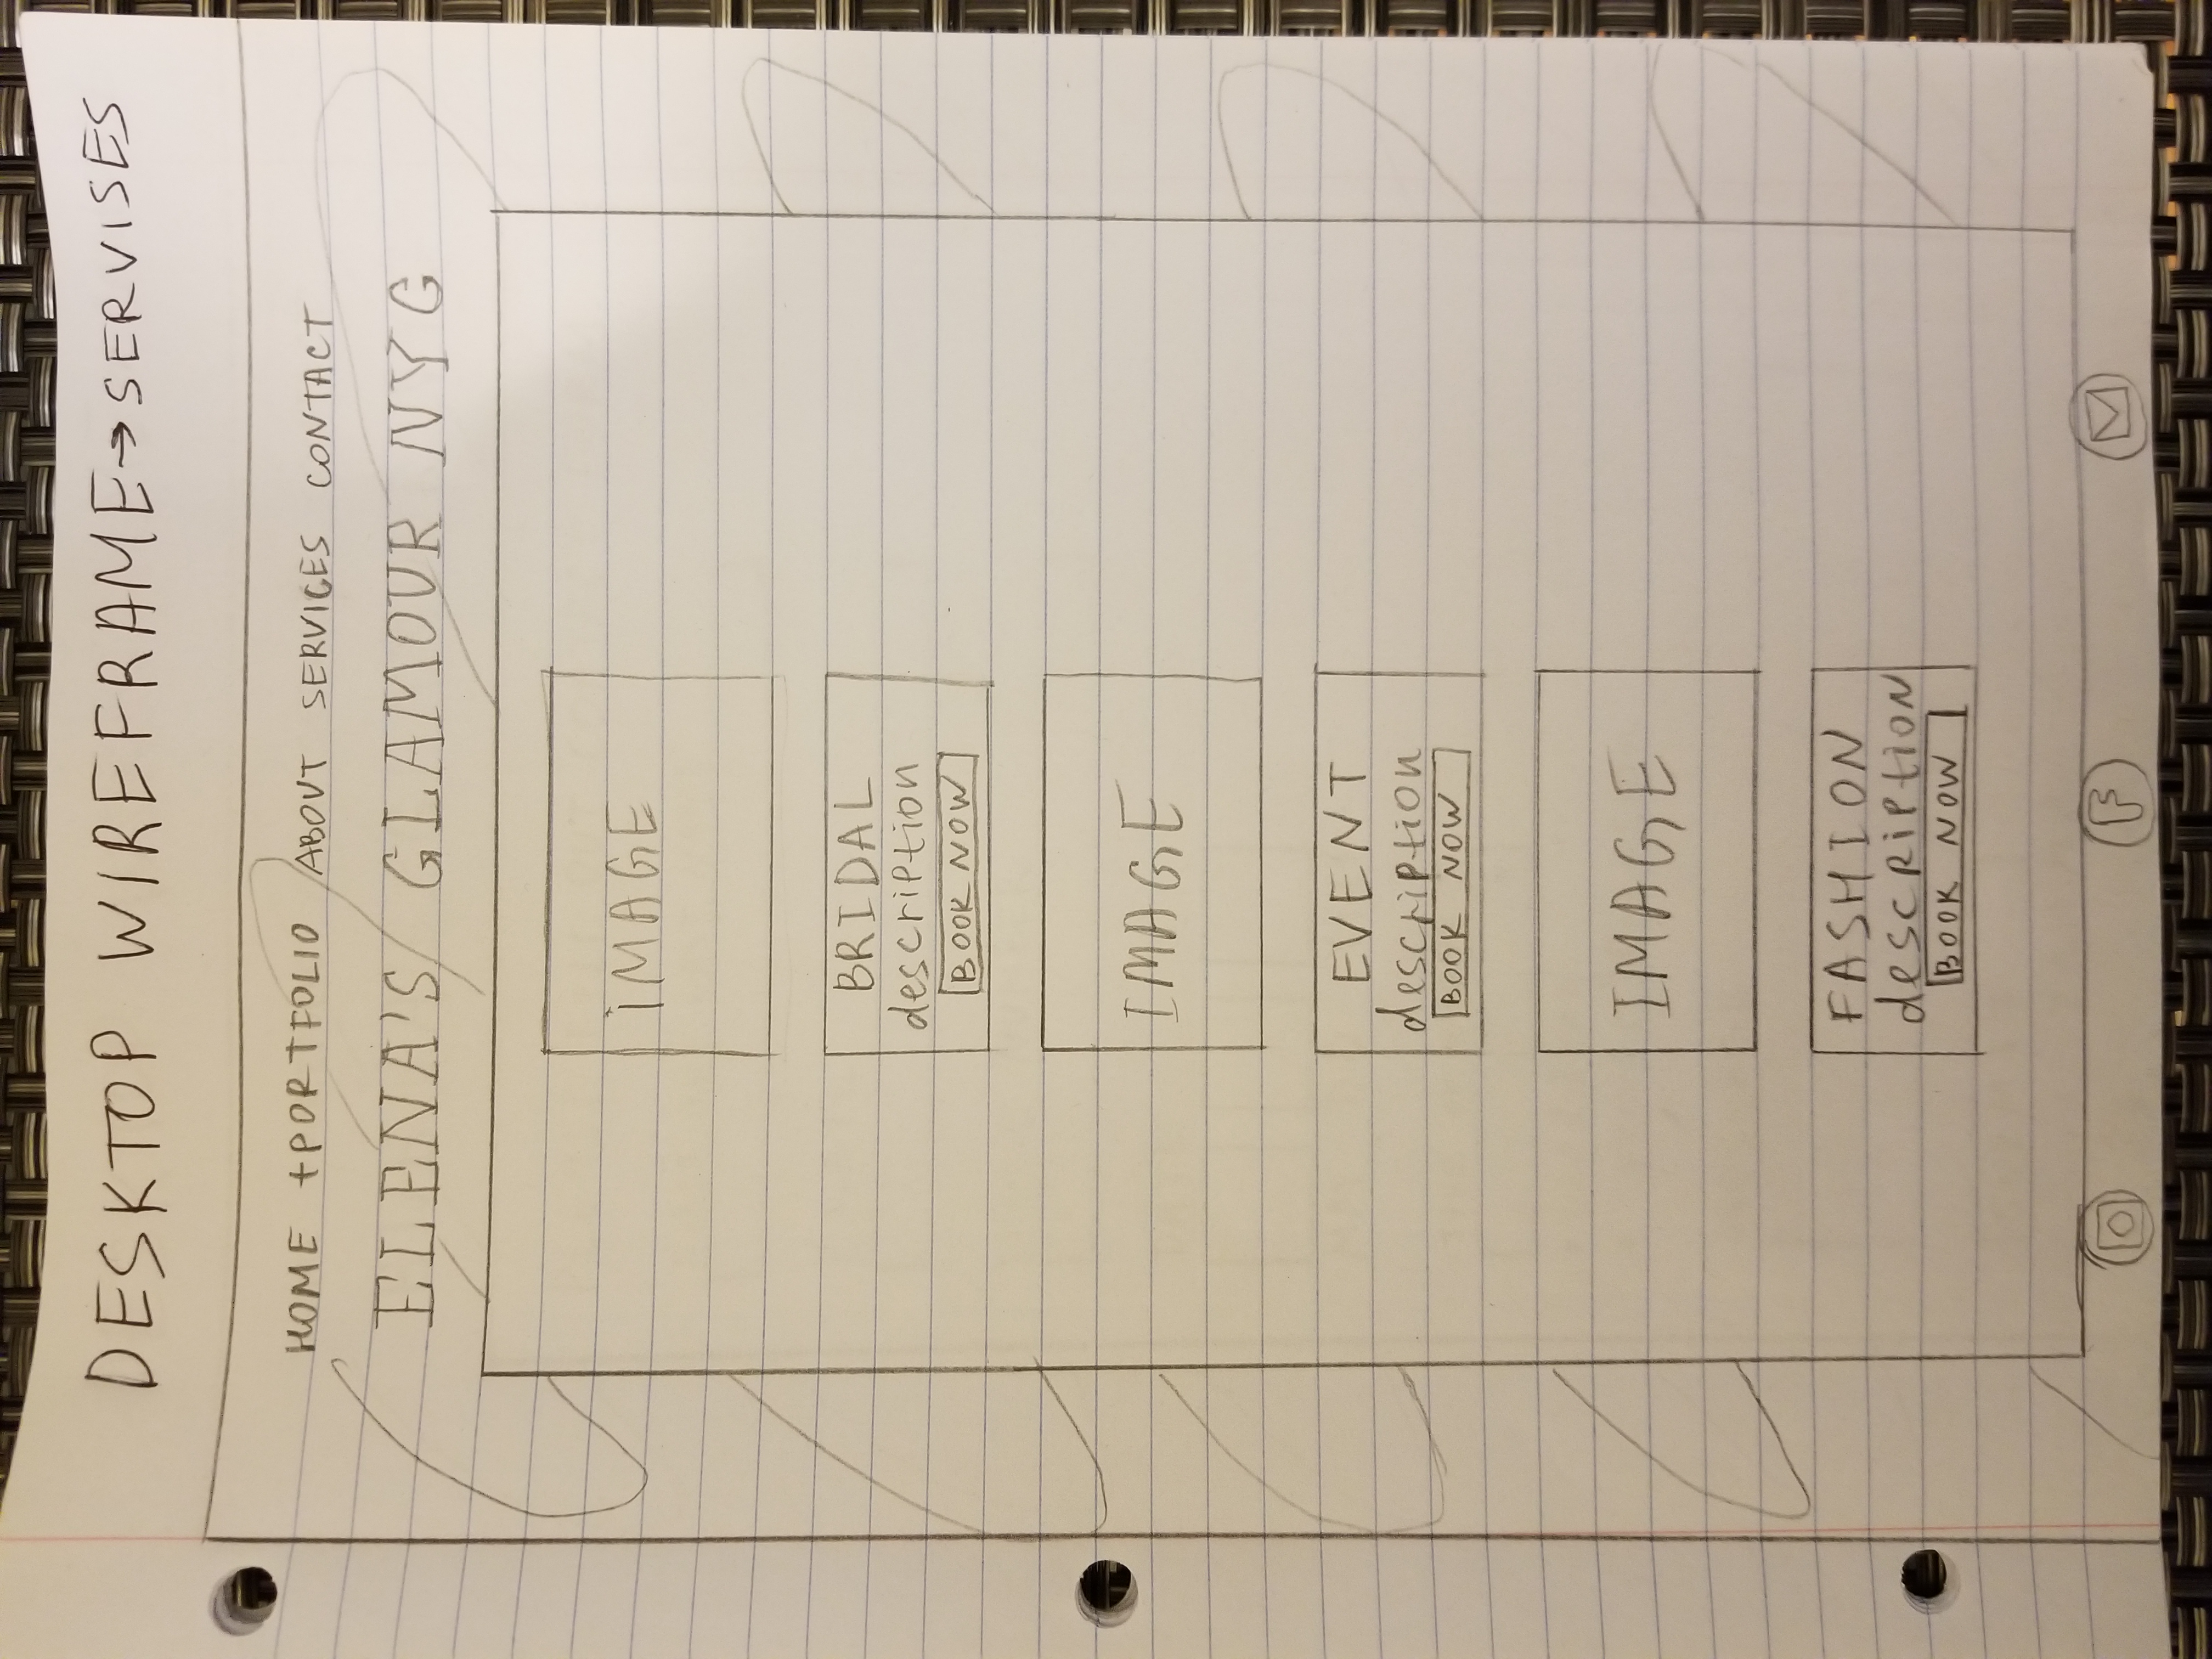 DESKTOP WIREFRAME → SERVISES
HOME +PORTFOLIO ABOUT SERVICES CONTACT
ELENA'S GLAMOUR NYC
iMAGE
BRIDAL
description
BOOK NOW
IMAGE
EVENT
description
BOOK NOW
IMAGE
FASHION
description
BOOK NOW
F